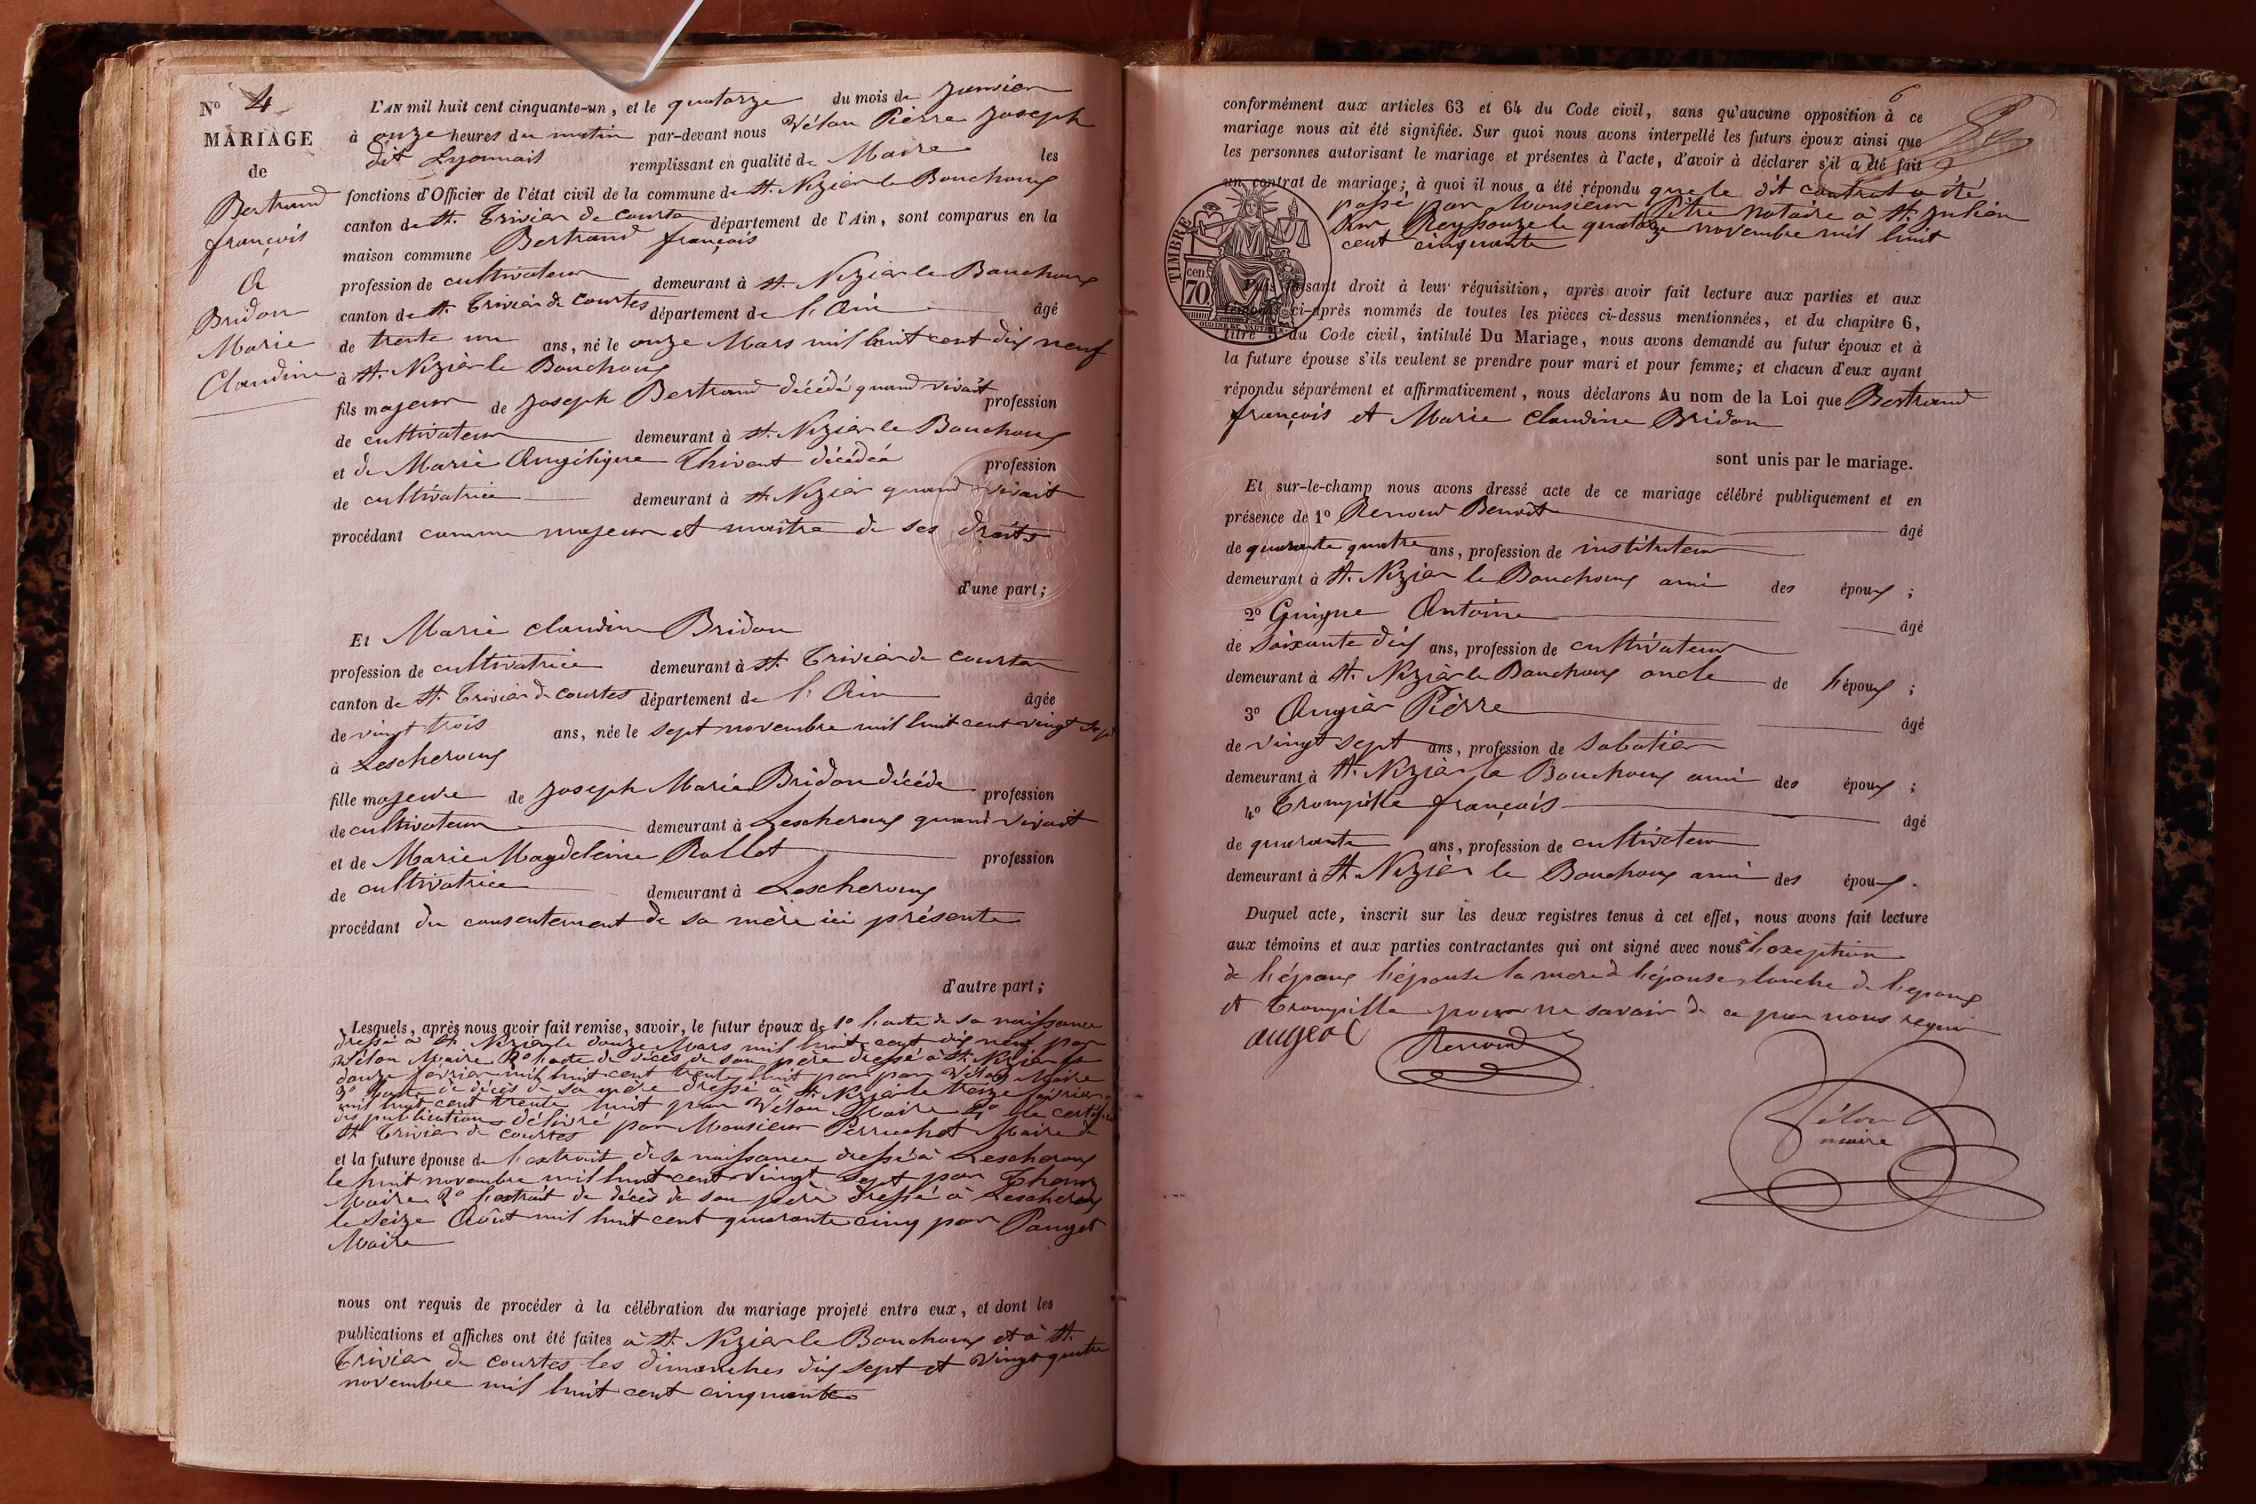 N° 4
MARIAGE
de
Bertrand
françois
&
Bridon
Marie
Claudine
L'AN mil huit cent cinquante-un, et le quatorze du mois de Janvier
à onze heures du matin par-devant nous Vélon Pierre Joseph
dit Lyonnais remplissant en qualité de Maire les
fonctions d'Officier de l'état civil de la commune de St. Nizier le Bouchoux
canton de St. Trivier de Courtes département de l'Ain, sont comparus en la
maison commune Bertrand françois
profession de cultivateur demeurant à St. Nizier le Bouchoux
canton de St. Trivier de Courtes département de l'Ain âgé
de trente un ans, né le onze Mars mil huit cent dix neuf
à St. Nizier le Bouchoux
fils majeur de Joseph Bertrand décédé quand vivait profession
de cultivateur demeurant à St. Nizier le Bouchoux
et de Marie Angélique Thivent décédée profession
de cultivatrice demeurant à St Nizier quand vivait
procédant comme majeur et maitre de ses droits
d'une part;
Et Marie Claudine Bridon
profession de cultivatrice demeurant à St. Trivier de Courtes
canton de St. Trivier de Courtes département de l'Ain âgée
de vingt trois ans, née le sept novembre mil huit cent vingt sept
à Lescheroux
fille majeure de Joseph Marie Bridon décédé profession
de cultivateur demeurant à Lescheroux quand vivait
et de Marie Magdeleine Rollet profession
de cultivatrice demeurant à Lescheroux
procédant du consentement de sa mère ici présente
d'autre part;
Lesquels, après nous avoir fait remise, savoir, le futur époux de 1° l'acte de sa naissance
dressé à St. Nizier le douze Mars mil huit cent dix neuf par
Vélon Maire 2° l'acte de décès de son père dressé à St. Nizier le
douze février mil huit cent trente huit par Vélon Maire
3° l'acte de décès de sa mère dressé à St. Nizier le treize février
mil huit cent trente huit par Vélon Maire 4° le certificat
des publications délivré par Monsieur Perruchot Maire de
St. Trivier de Courtes
et la future épouse de l'extrait de sa naissance dressé à Lescheroux
le huit novembre mil huit cent vingt sept par
Maire 2° l'extrait de décès de son père dressé à Lescheroux
le seize Août mil huit cent quarante cinq par Pauget
Maire
nous ont requis de procéder à la célébration du mariage projeté entre eux, et dont les
publications et affiches ont été faites à St. Nizier le Bouchoux et à St.
Trivier de Courtes les dimanches dix sept et vingt quatre
novembre mil huit cent cinquante
6
conformément aux articles 63 et 64 du Code civil, sans qu'aucune opposition à ce
mariage nous ait été signifiée. Sur quoi nous avons interpellé les futurs époux ainsi que
les personnes autorisant le mariage et présentes à l'acte, d'avoir à déclarer s'il a été fait
un contrat de mariage; à quoi il nous a été répondu que le dit contrat a été
passé par Monsieur Pitre Notaire à St. Julien
sur Reyssouze le quatorze novembre mil huit
cent cinquante
TIMBRE
cen.
70
faisant droit à leur réquisition, après avoir fait lecture aux parties et aux
témoins ci-après nommés de toutes les pièces ci-dessus mentionnées, et du chapitre 6,
titre 5 du Code civil, intitulé Du Mariage, nous avons demandé au futur époux et à
la future épouse s'ils veulent se prendre pour mari et pour femme; et chacun d'eux ayant
répondu séparément et affirmativement, nous déclarons Au nom de la Loi que Bertrand
françois et Marie Claudine Bridon
sont unis par le mariage.
Et sur-le-champ nous avons dressé acte de ce mariage célébré publiquement et en
présence de 1° Renoud Benoit âgé
de quarante quatre ans, profession de instituteur
demeurant à St. Nizier le Bouchoux ami des époux;
2° Guigue Antoine âgé
de soixante dix ans, profession de cultivateur
demeurant à St. Nizier le Bouchoux oncle de l'époux;
3° Augier Pierre âgé
de vingt sept ans, profession de sabotier
demeurant à St. Nizier le Bouchoux ami des époux;
4° Trompille françois âgé
de quarante ans, profession de cultivateur
demeurant à St Nizier le Bouchoux ami des époux.
Duquel acte, inscrit sur les deux registres tenus à cet effet, nous avons fait lecture
aux témoins et aux parties contractantes qui ont signé avec nous à l'exeption
de l'époux l'épouse la mere de l'épouse l'oncle de l'epoux
et Trompille pour ne savoir de ce par nous requis
augeol
Renoud
Vélon
maire